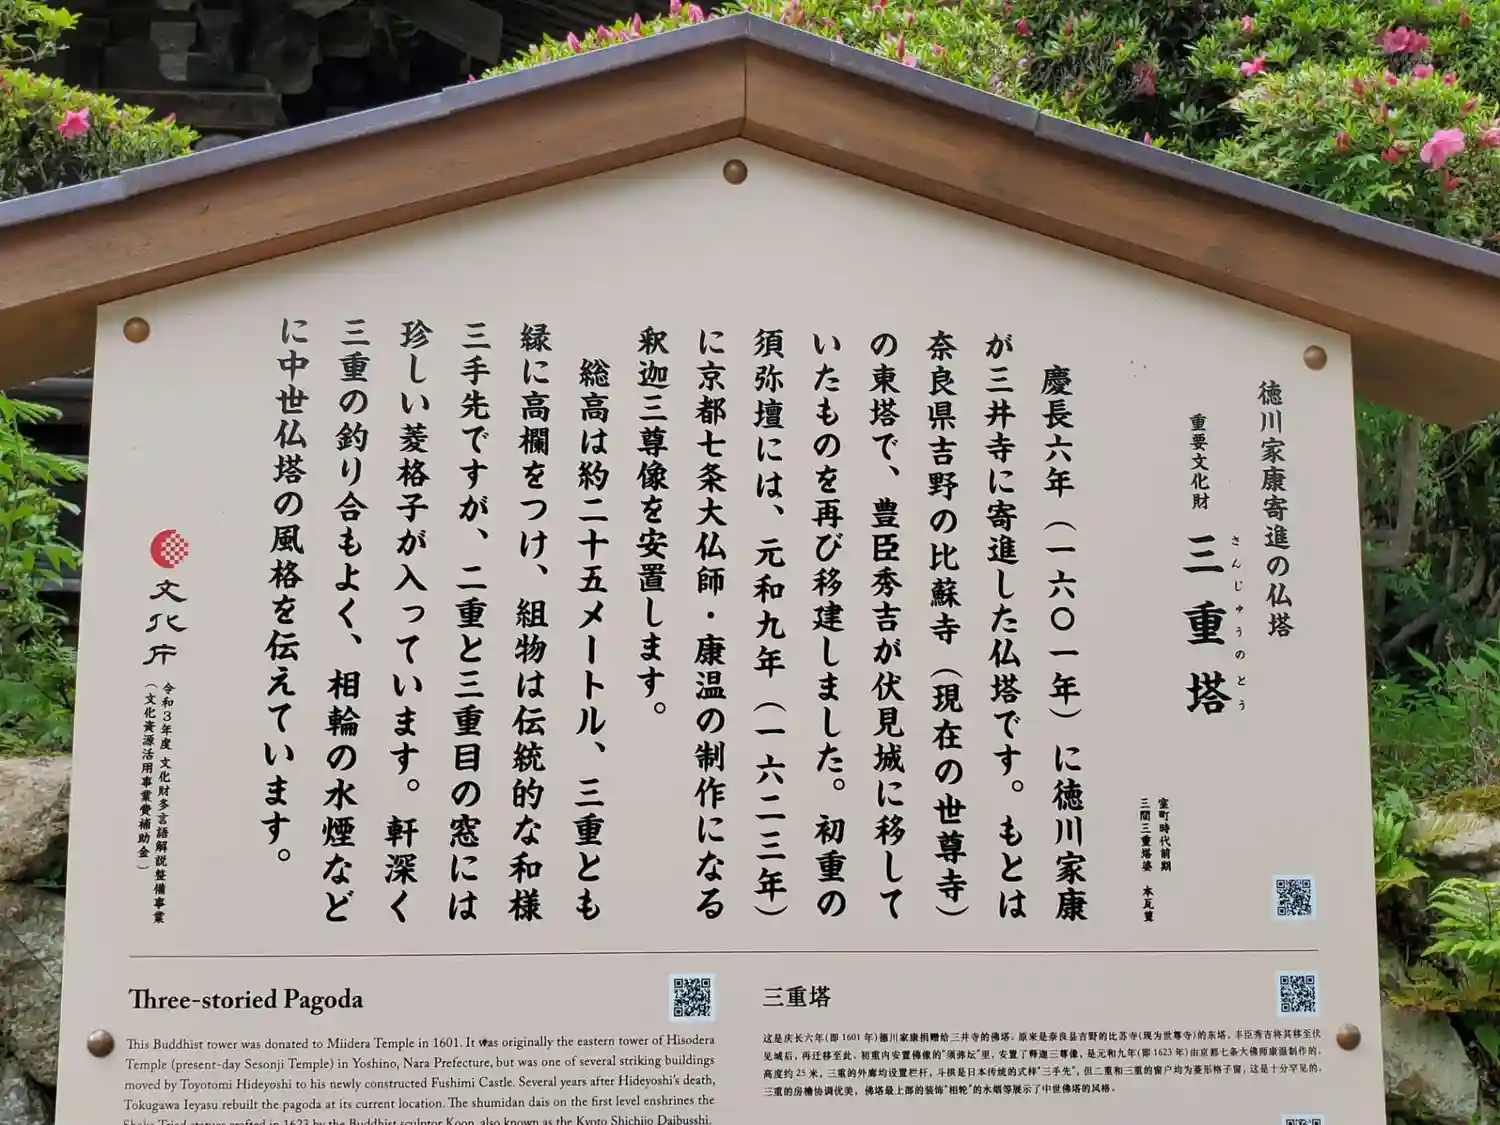 徳川家康寄進の仏塔
重要文化財 三重塔
さんじゅうのとう
室町時代前期
三間三重塔婆 本瓦葺
慶長六年（一六〇一年）に徳川家康
が三井寺に寄進した仏塔です。もとは
奈良県吉野の比蘇寺（現在の世尊寺）
の東塔で、豊臣秀吉が伏見城に移して
いたものを再び移建しました。初重の
須弥壇には、元和九年（一六二三年）
に京都七条大仏師・康温の制作になる
釈迦三尊像を安置します。
総高は約二十五メートル、三重とも
緑に高欄をつけ、組物は伝統的な和様
三手先ですが、二重と三重目の窓には
珍しい菱格子が入っています。軒深く
三重の釣り合もよく、相輪の水煙など
に中世仏塔の風格を伝えています。
文化庁
令和3年度 文化財多言語解説整備事業
（文化資源活用事業費補助金）
Three-storied Pagoda
This Buddhist tower was donated to Miidera Temple in 1601. It was originally the eastern tower of Hisodera
Temple (present-day Sesonji Temple) in Yoshino, Nara Prefecture, but was one of several striking buildings
moved by Toyotomi Hideyoshi to his newly constructed Fushimi Castle. Several years after Hideyoshi's death,
Tokugawa Ieyasu rebuilt the pagoda at its current location. The shumidan dais on the first level enshrines the
Shaka Triad statues crafted in 1623 by the Buddhist sculptor Koon, also known as the Kyoto Shichijo Daibusshi.
三重塔
这是庆长六年(即 1601 年)德川家康捐赠给三井寺的佛塔。原来是奈良县吉野的比苏寺(现为世尊寺)的东塔，丰臣秀吉将其移至伏
见城后，再迁移至此。初重内安置佛像的“须弥坛”里，安置了释迦三尊像，是元和九年(即 1623 年)由京都七条大佛师康温制作的。
高度约 25 米，三重的外廊均设置栏杆，斗拱是日本传统的式样“三手先”，但二重和三重的窗户均为菱形格子窗，这是十分罕见的。
三重的房檐协调优美，佛塔最上部的装饰“相轮”的水烟等展示了中世佛塔的风格。